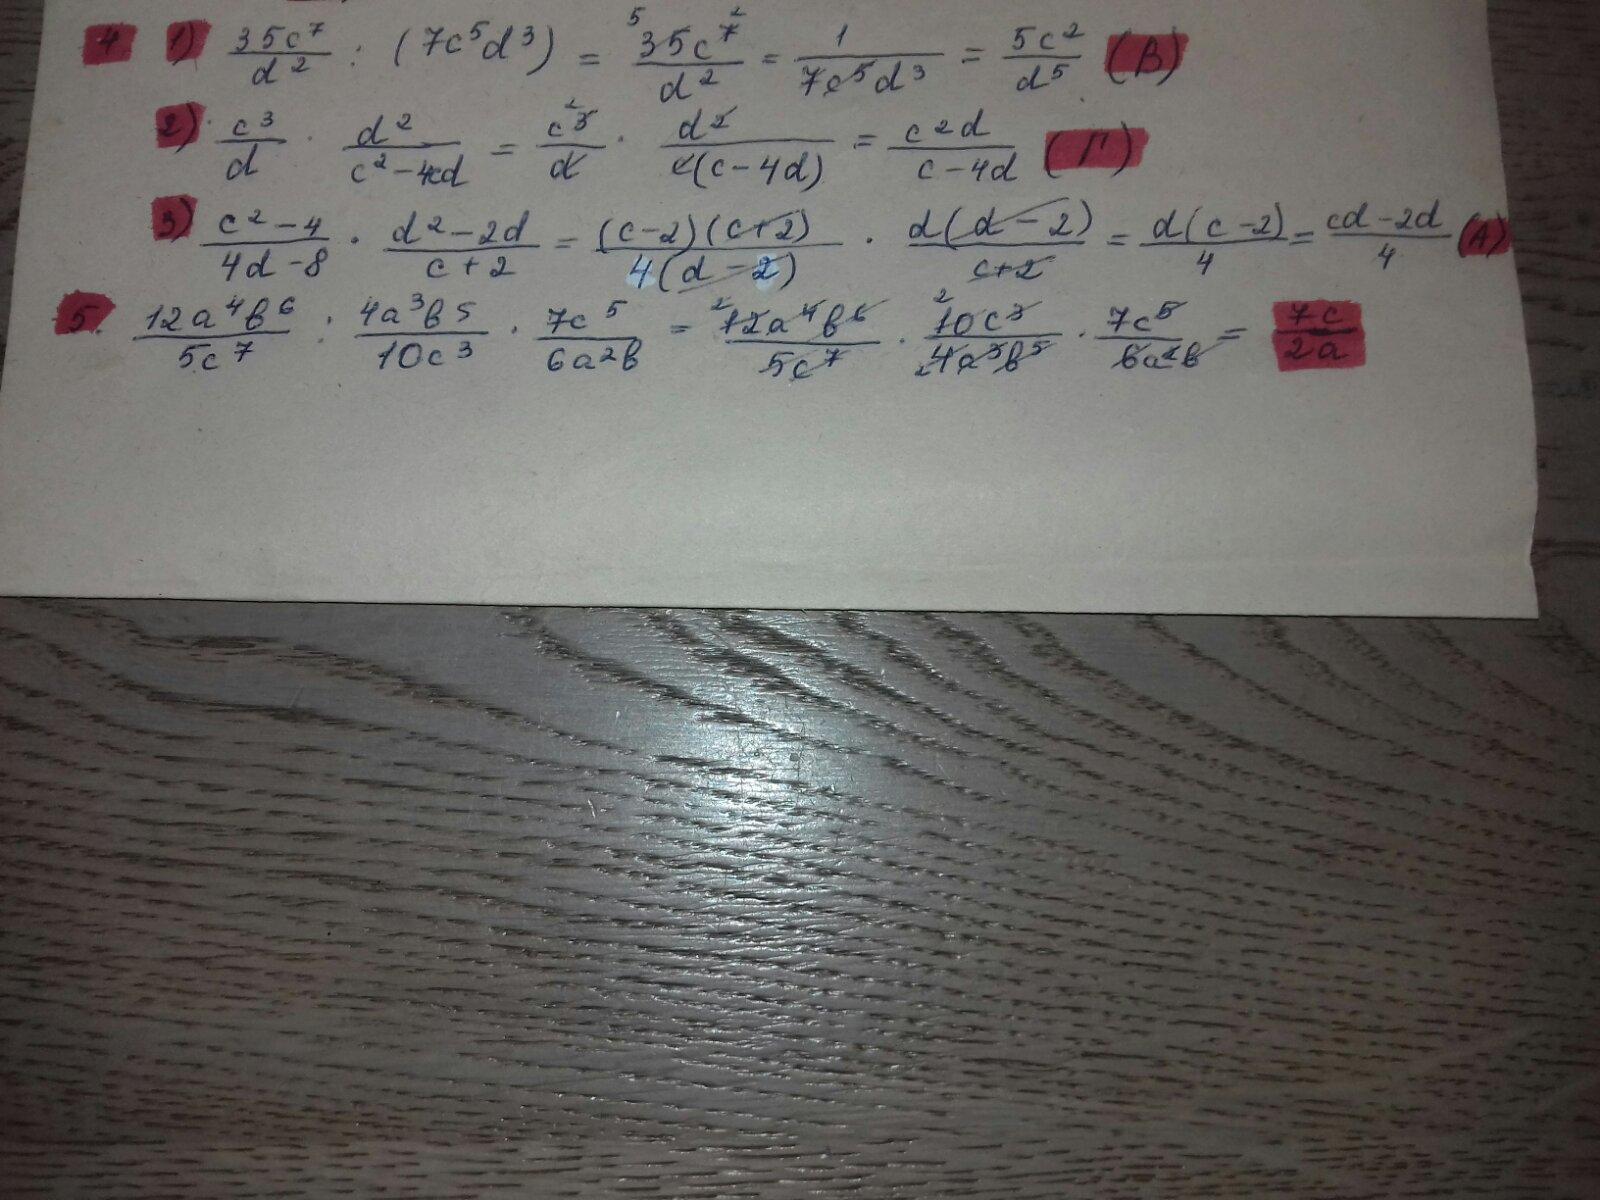 4 1) 35c⁷/d² : (7c⁵d³) = 35c⁷/d² = 1/7c⁵d³ = 5c²/d⁵ (В)
2) c³/d · d²/c²-4cd = c³/d · d²/c(c-4d) = c²d/c-4d (Г)
3) c²-4/4d-8 · d²-2d/c+2 = (c-2)(c+2)/4(d-2) · d(d-2)/c+2 = d(c-2)/4 = cd-2d/4 (А)
5. 12a⁴b⁶/5c⁷ : 4a³b⁵/10c³ · 7c⁵/6a²b = 12a⁴b⁶/5c⁷ · 10c³/4a³b⁵ · 7c⁵/6a²b = 7c/2a